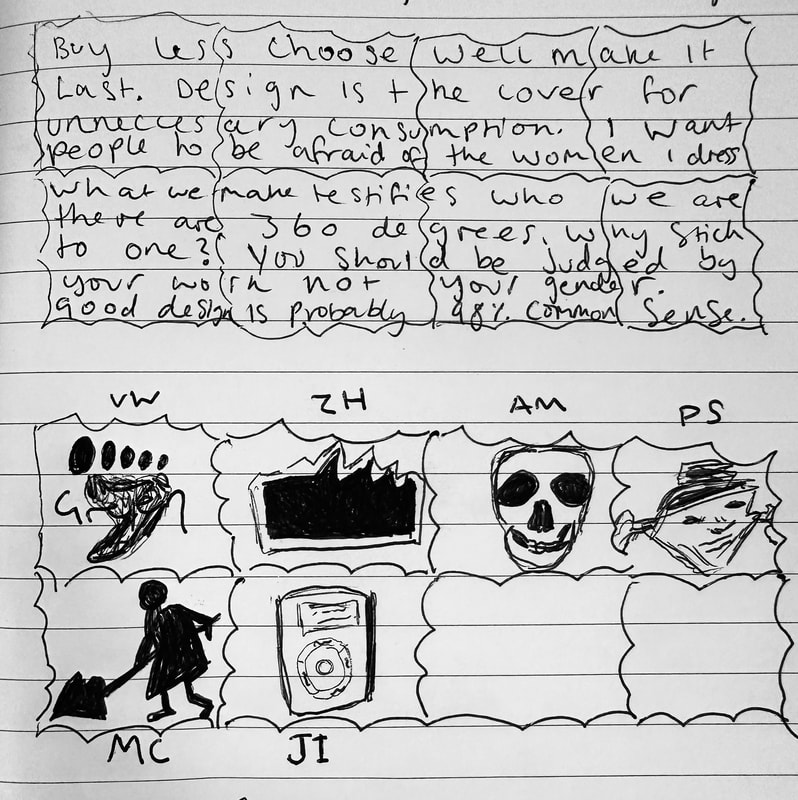 Buy less choose well make it
Last. Design is the cover for
unneccesary consumption. I want
people to be afraid of the women I dress
What we make testifies who we are
there are 360 degrees. Why stick
to one? You should be judged by
your work not your gender.
good design is probably 98% common sense.
VW ZH AM PS
MC JI